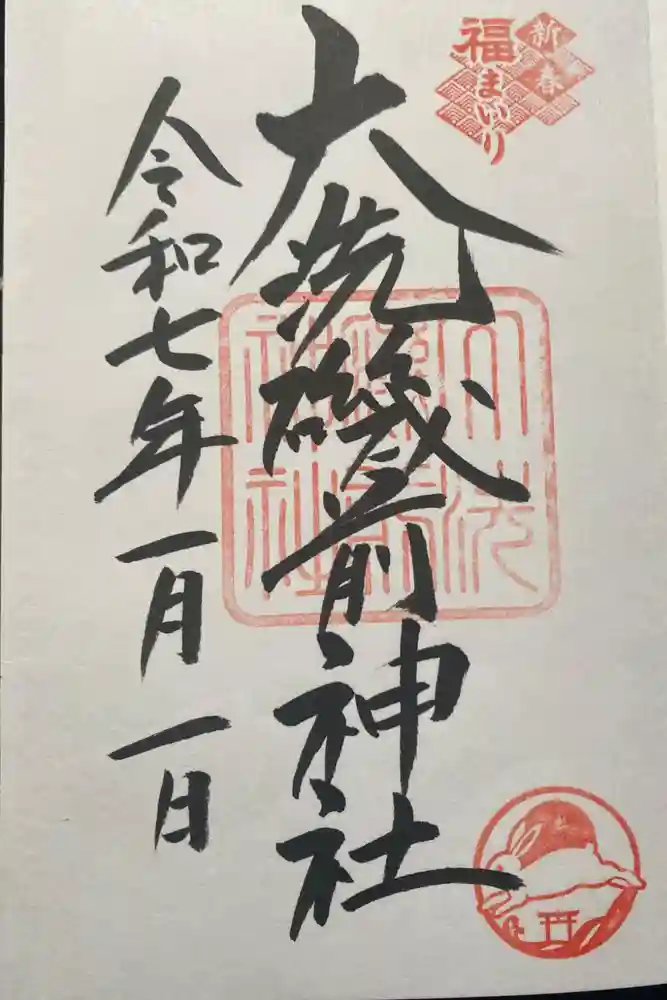 新春
福まいり
大洗磯前神社
大洗
磯前
神社
令和七年一月一日